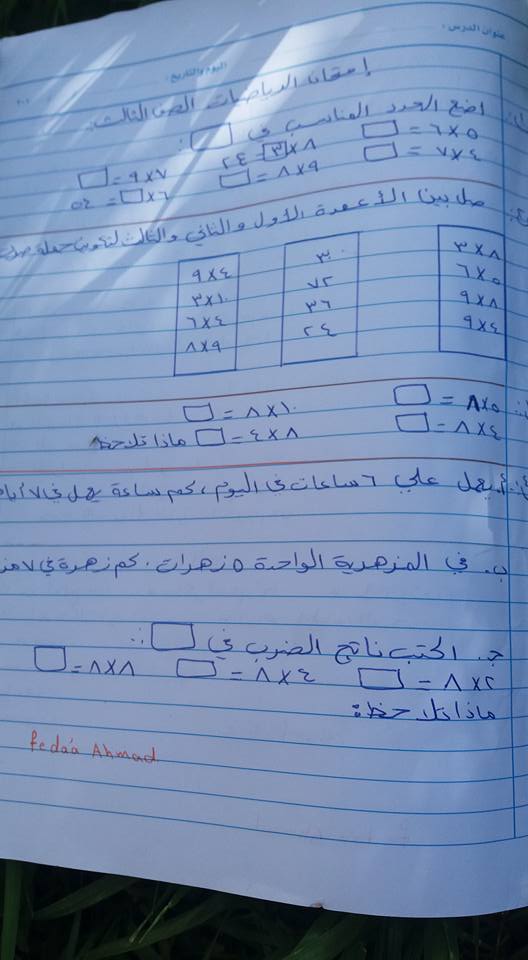 عنوان الدرس:
اليوم والتاريخ:
إمتحان الرياضيات الصف الثالث.
اضع العدد المناسب في □:
٥×٦=□ ٨×٣=٢٤ ٧×٩=□
٤×٧=□ ٩×٨=□ ٦×□=
صل بين الأعمدة الأول والثاني والثالث لتكوين جملة
٨×٣ ٣٠ ٤×٩
٥×٦ ٧٢ ١٠×٣
٨×٩ ٣٦ ٤×٦
٤×٩ ٢٤ ٩×٨
٥×٨=□ ١٠×٨=□
٤×٨=□ ٨×٤=□ ماذا تلاحظ
أ. يعمل علي ٦ ساعات في اليوم، كم ساعة يعمل في ٧ أيا
ب. في المزهرية الواحدة ٥ زهرات. كم زهرة في ٧ مز
ج. اكتب ناتج الضرب في □:
٢×٨=□ ٤×٨=□ ٨×٨=□
ماذا تلاحظ:
fedaa Ahmad